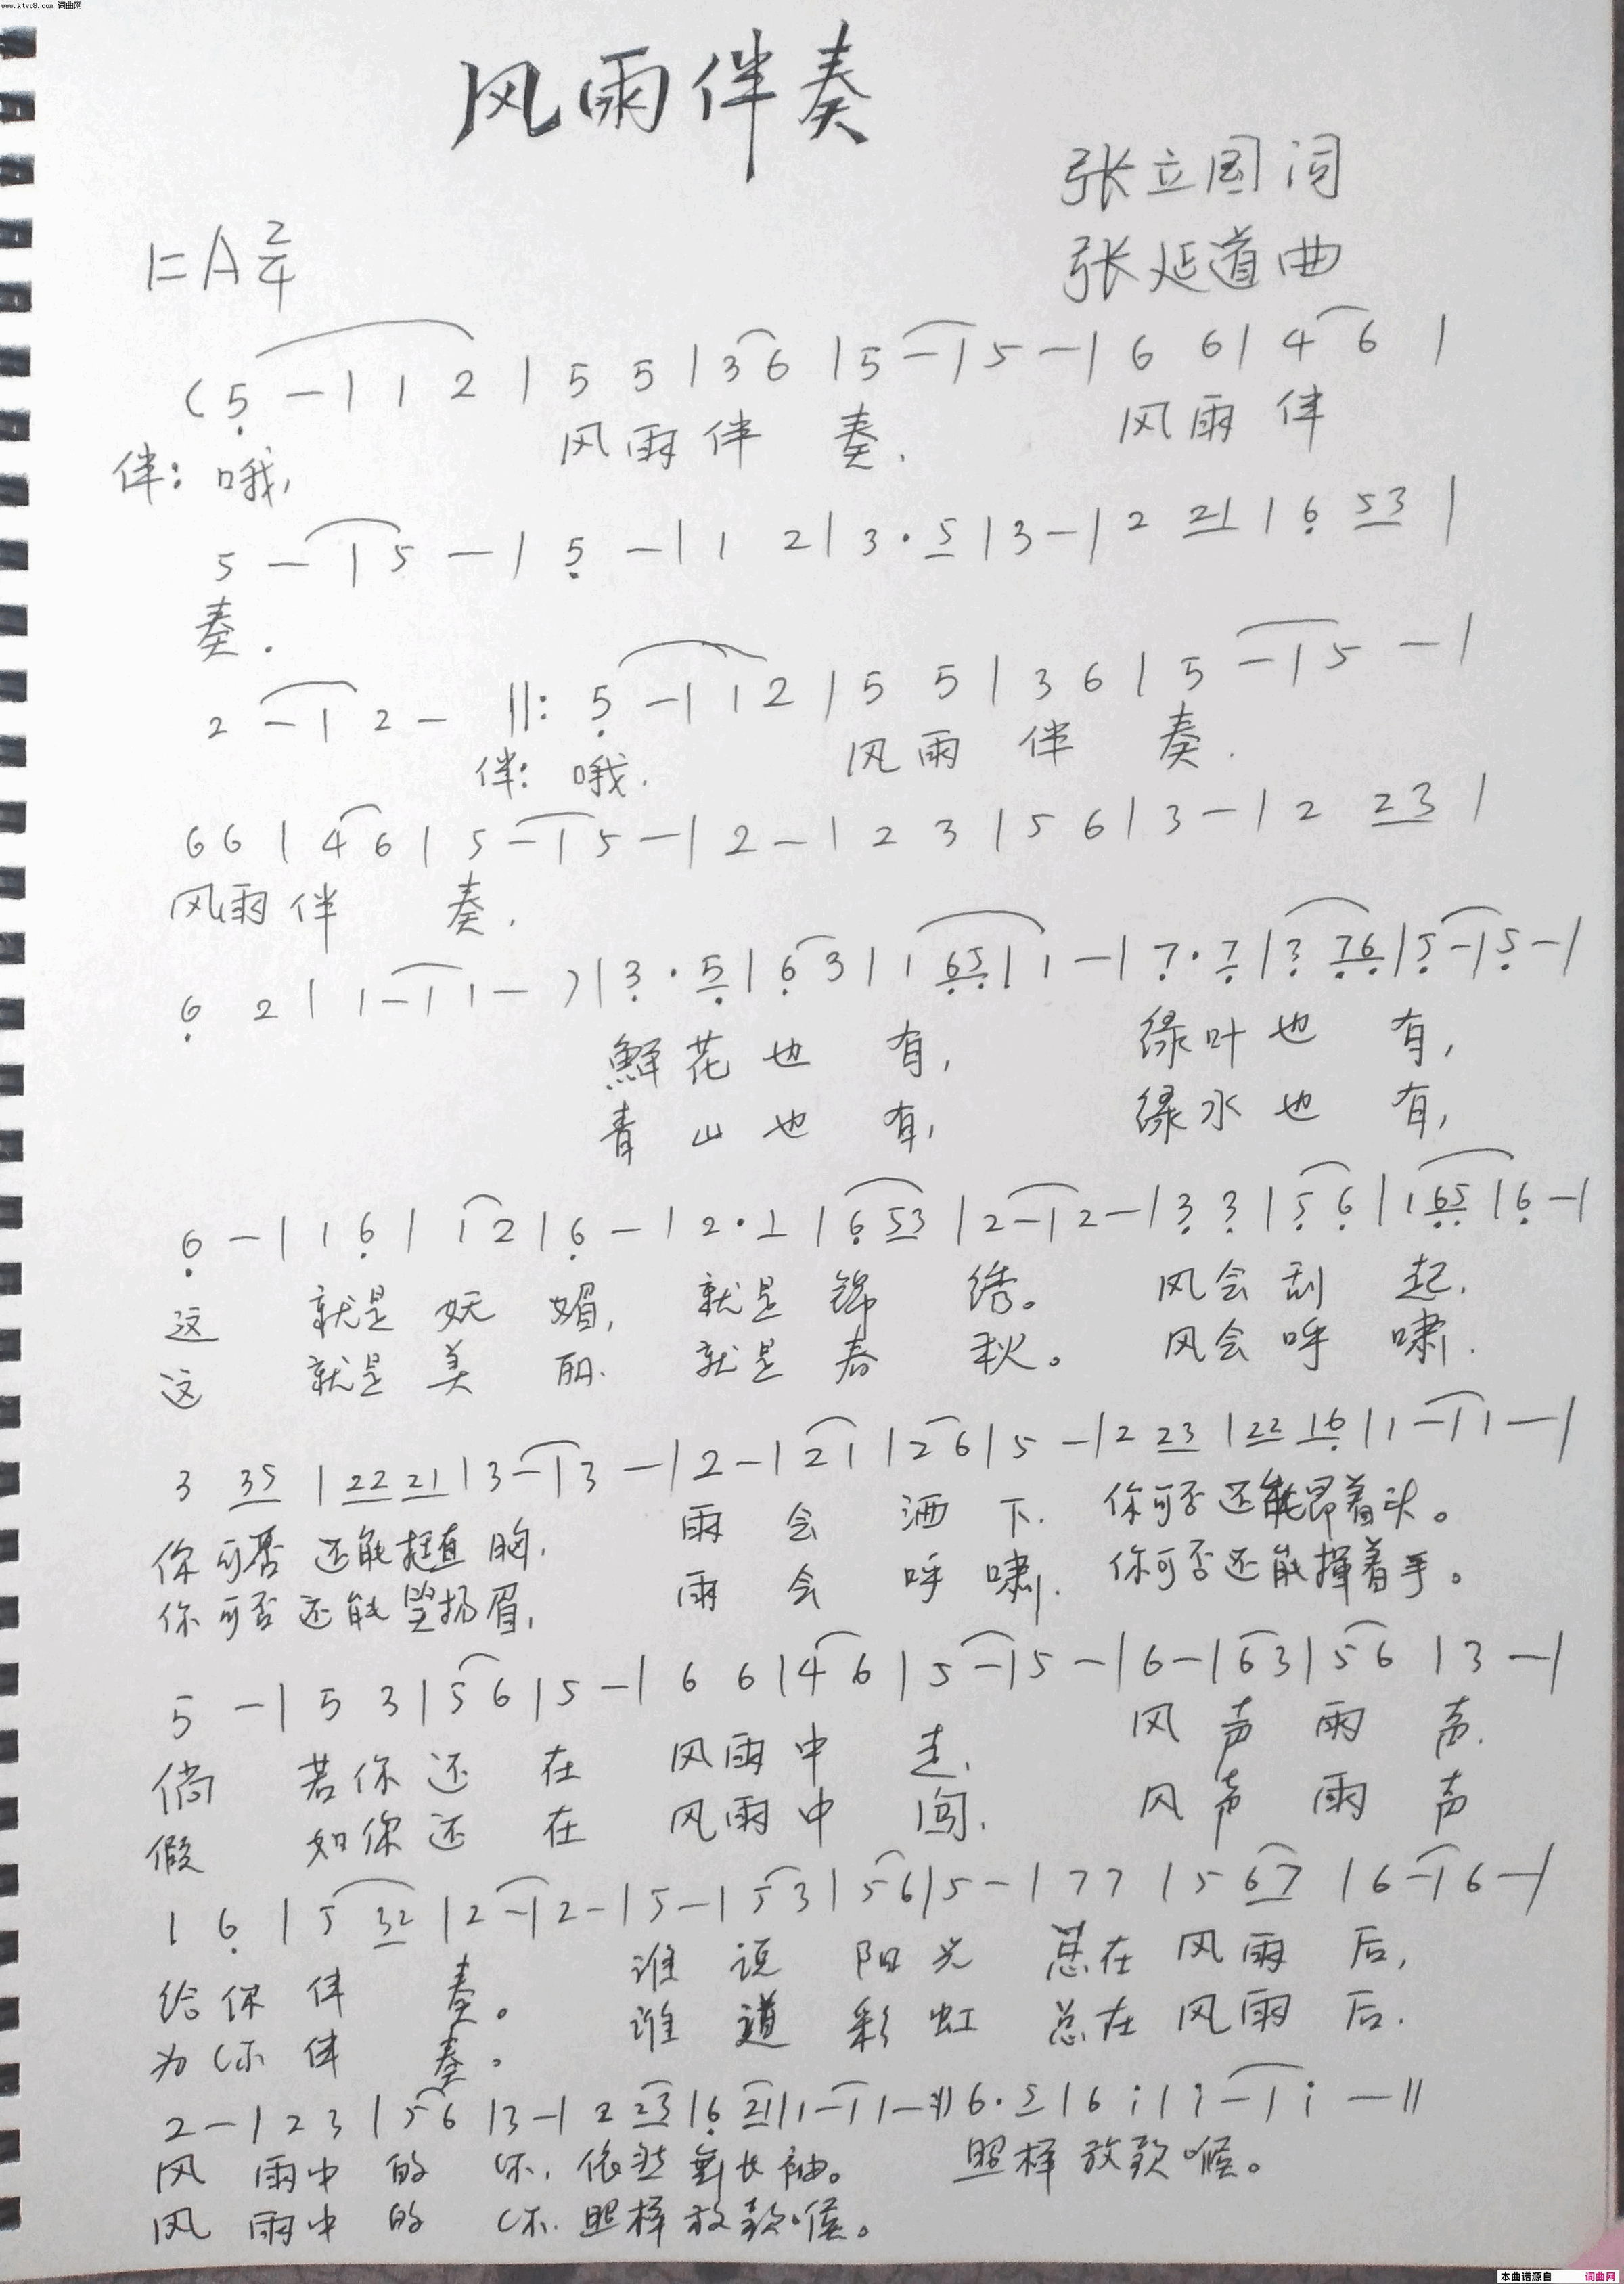 www.ktvc8.com 词曲网
风雨伴奏
张立国 词
1=A 2/4
张延道 曲
(5 - | 1 2 | 5 5 | 3 6 | 5 - | 5 - | 6 6 | 4 6 |
伴: 哦, 风雨伴 奏. 风雨伴
5 - | 5 - | 5 - | 1 2 | 3 · 5 | 3 - | 2 21 | 6 53 |
奏.
2 - | 2 - ‖: 5 - | 1 2 | 5 5 | 3 6 | 5 - | 5 - |
伴: 哦. 风雨 伴 奏.
6 6 | 4 6 | 5 - | 5 - | 2 - | 2 3 | 5 6 | 3 - | 2 23 |
风雨伴 奏.
6 2 | 1 - | 1 - ) | 3 · 5 | 6 3 | 1 65 | 1 - | 7 · 7 | 3 76 | 5 - | 5 - |
鲜花也 有, 绿叶也 有,
青山也 有, 绿水也 有,
6 - | 1 6 | 1 2 | 6 - | 2 · 1 | 6 53 | 2 - | 2 - | 3 3 | 5 6 | 1 65 | 6 - |
这 就是妖 媚, 就是锦 绣。 风会刮 起.
这 就是美 丽. 就是春 秋。 风会呼 啸.
3 35 | 22 21 | 3 - | 3 - | 2 - | 2 1 | 2 6 | 5 - | 2 23 | 22 16 | 1 - | 1 - |
你可否还能挺直胸. 雨 会 洒 下. 你可否还能昂着头。
你可否还能竖扬眉, 雨 会 呼 啸. 你可否还能挥着手。
5 - | 5 3 | 5 6 | 5 - | 6 6 | 4 6 | 5 - | 5 - | 6 - | 6 3 | 5 6 | 3 - |
倘 若你还 在 风雨中 走. 风 声 雨 声.
假 如你还 在 风雨中 闯. 风 声 雨 声
1 6 | 5 32 | 2 - | 2 - | 5 - | 5 3 | 5 6 | 5 - | 7 7 | 5 67 | 6 - | 6 - |
给你伴 奏。 谁 说 阳 光 总在风雨 后,
为你伴 奏。 谁 道 彩 虹 总在风雨 后.
2 - | 2 3 | 5 6 | 3 - | 2 23 | 6 21 | 1 - | 1 - :‖ 6 · 5 | 6 i | i - | i - ‖
风 雨中 的 你, 依然舞长袖。 照样放歌喉。
风 雨中 的 你. 照样放歌喉。
本曲谱源自 词曲网